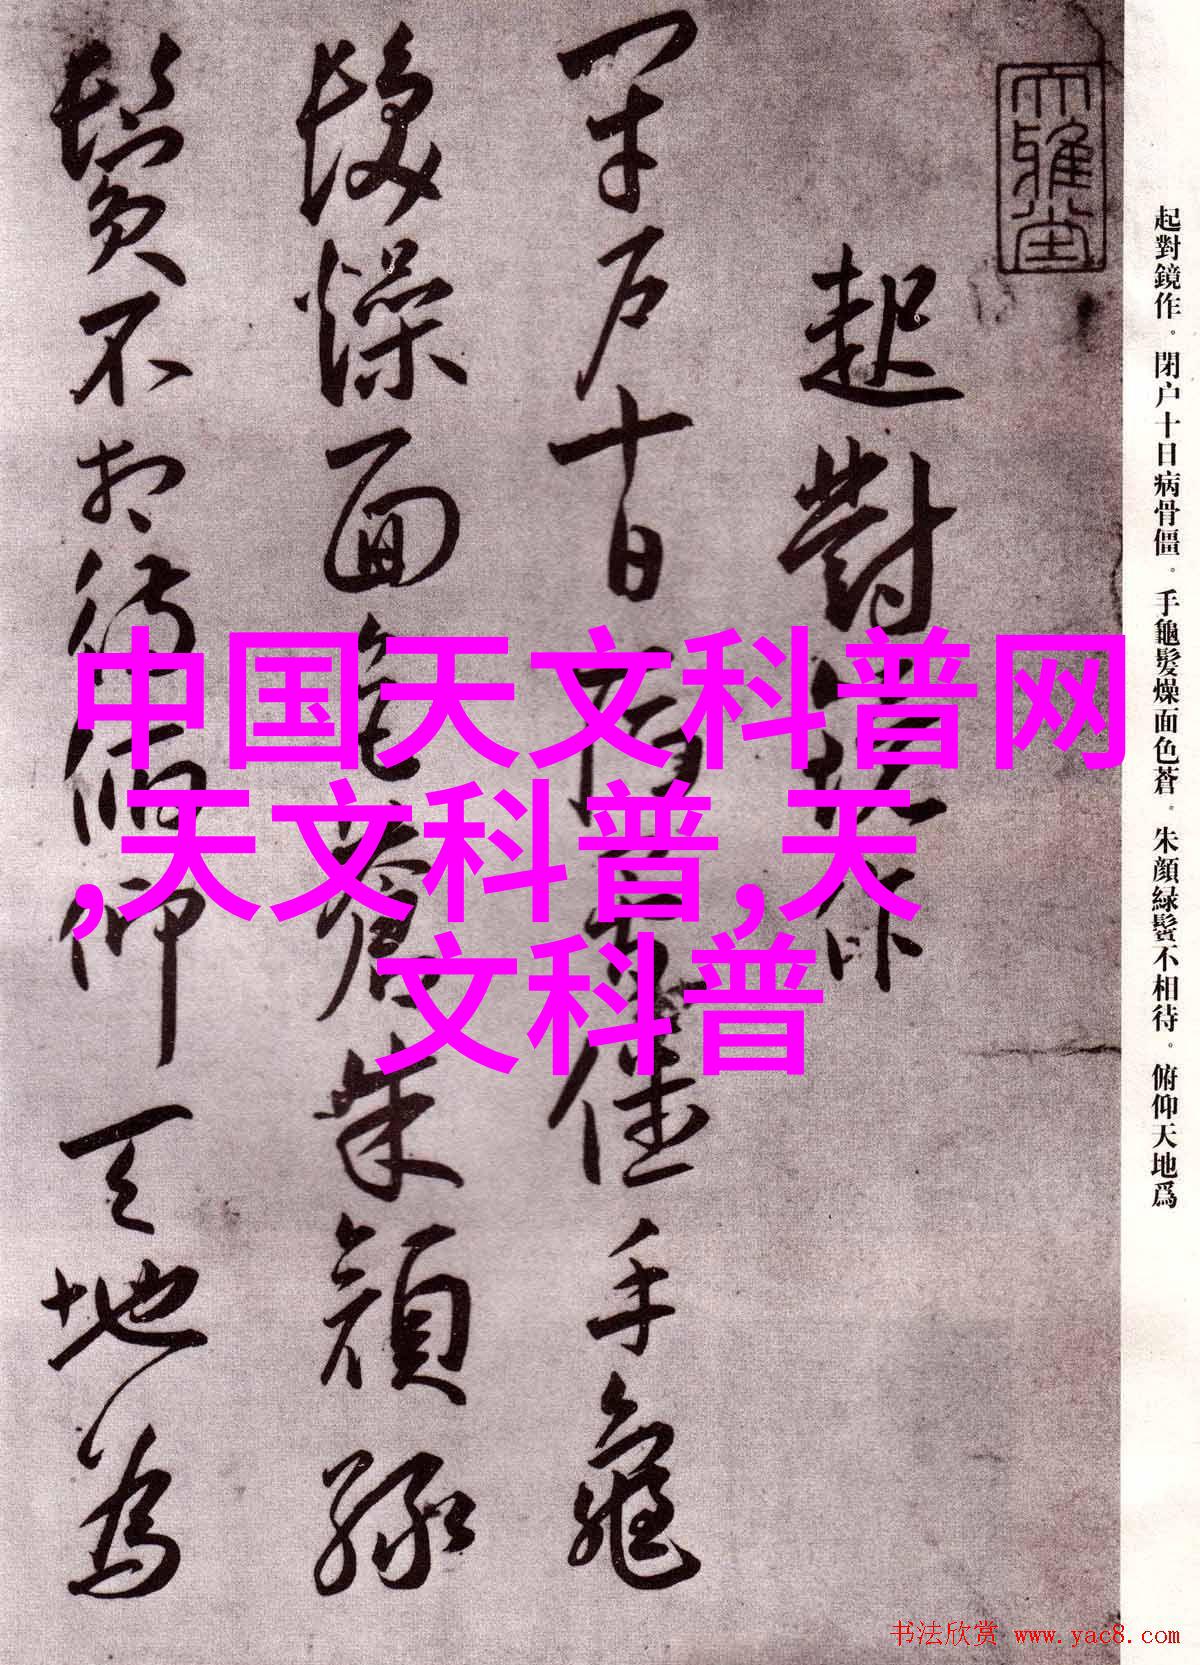 大雅堂
起對鏡作
閉户十日病骨僵手龜
髮燥面色蒼朱顔緑
鬢不相待俯仰天地為
起對鏡作。閉户十日病骨僵。手龜髮燥面色蒼。朱顔緑鬢不相待。俯仰天地爲
中国天文科普网
,天文科普,天
文科普
书法欣赏 www.yac8.com